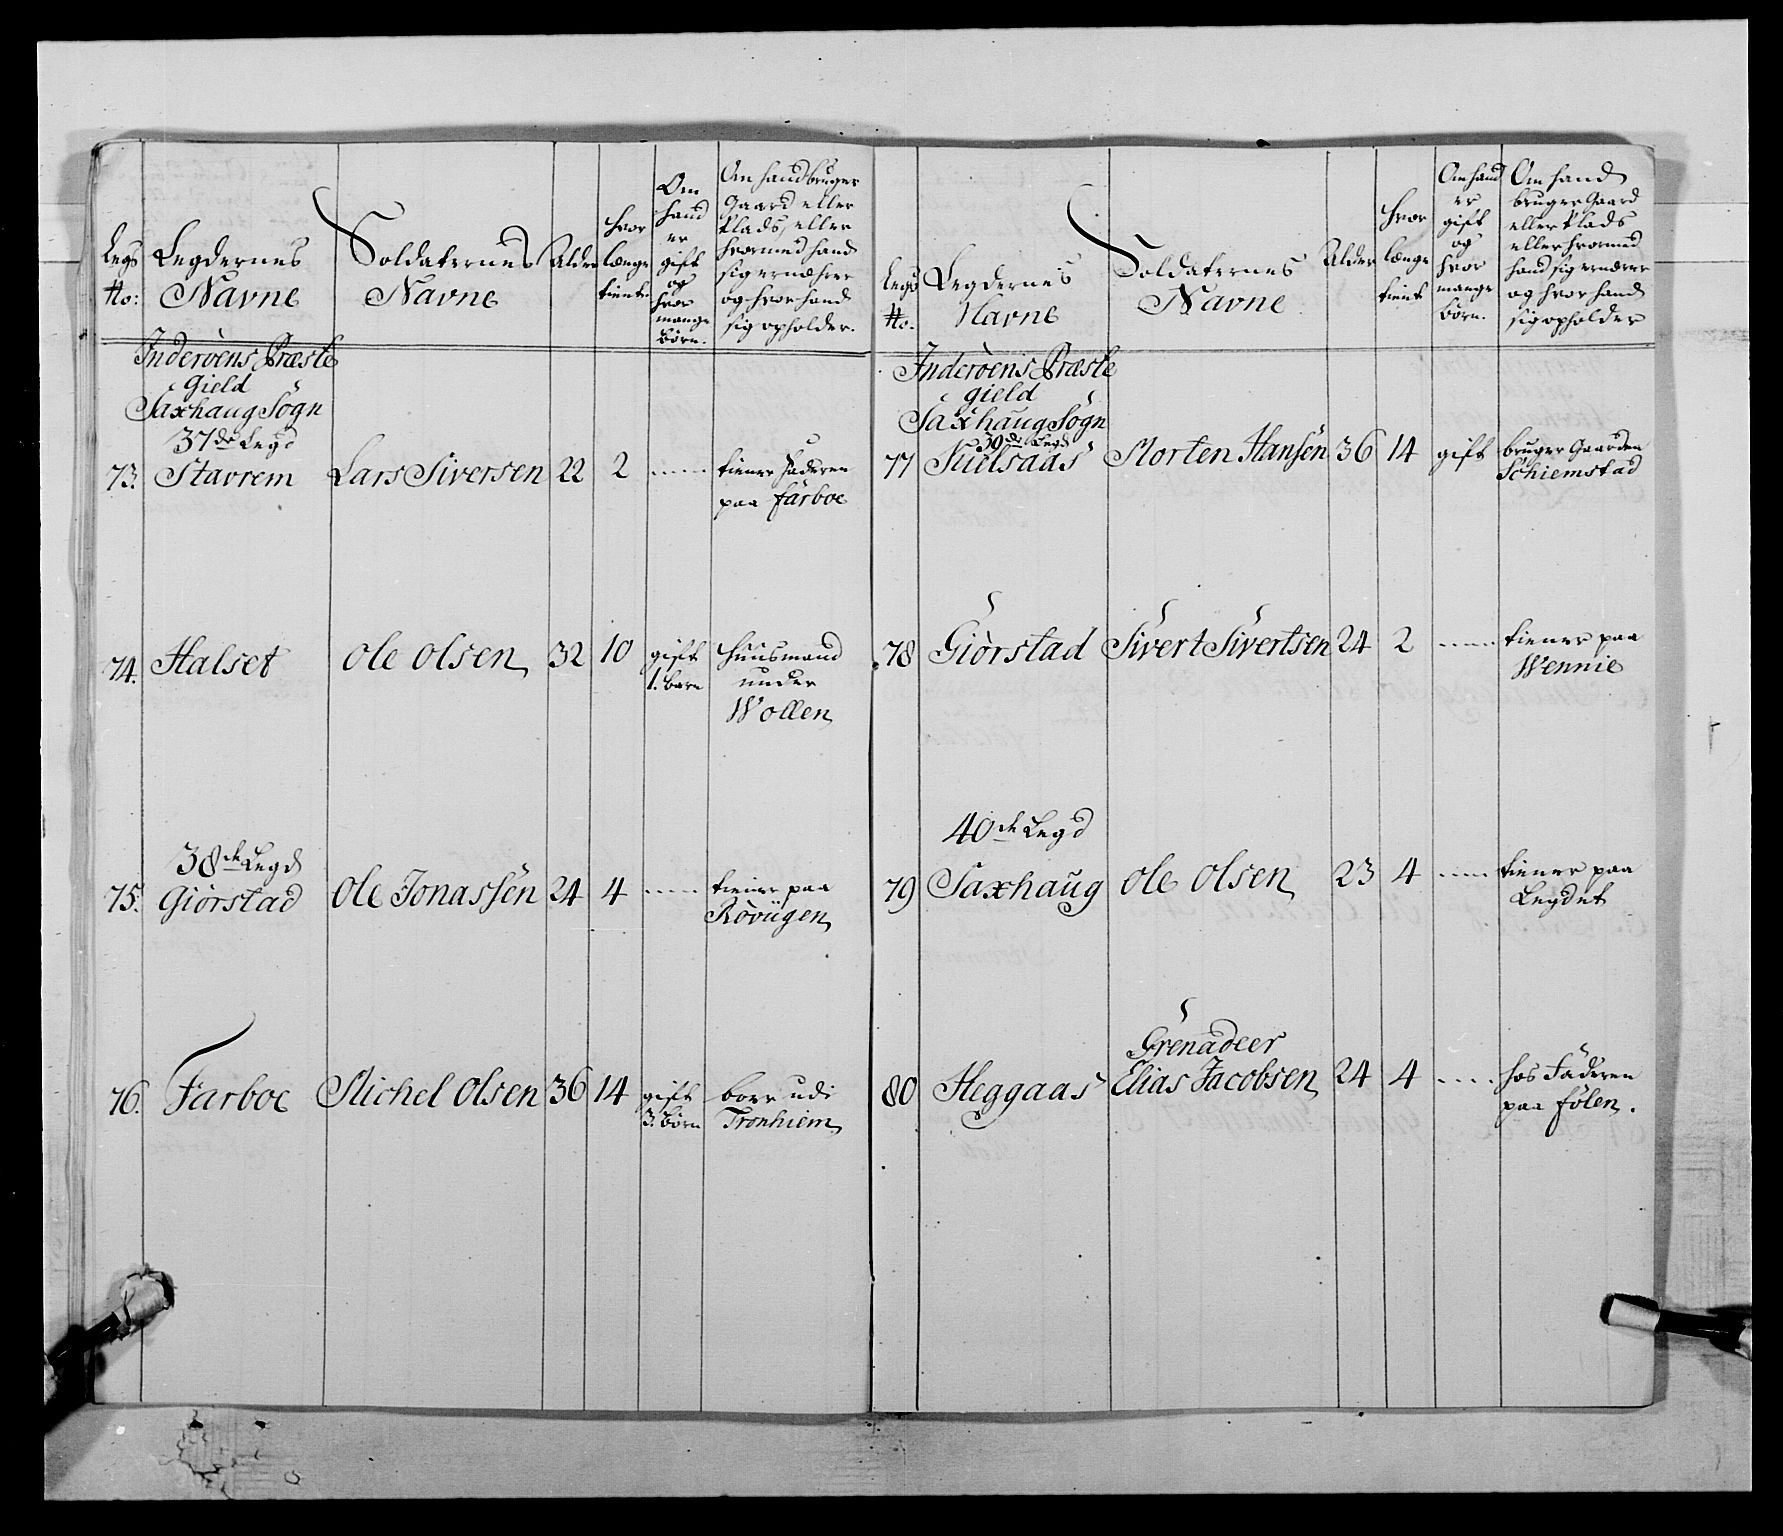 Legs No:
Legdernes Navne
Soldaternes Navne
Alder
hvor længe tient.
Om hand er gift og hvor mange börn.
Om hand bruger Gaard eller Plads, eller hvormed hand sig ernæhrer og hvor hand sig opholder.
Inderöens Præste
Gield
Saxhaug Sögn
37de Legd
73. Stavrem Lars Siversen 22 2 ...... tiener Faderen
paa Farboe
74. Halset Ole Olsen 32 10 gift Huusmand
1. barn under
Wollen
38de Legd
75. Giörstad Ole Jonassen 24 4 ...... tiener paa
Rövügen
76. Farboe Michel Olsen 36 14 gift boer udi
3. börn Tronhiem
Legs No.
Legdernes Navne
Soldaternes Navne
Alder
hvor længe tient
Om hand er gift og hvor mange börn.
Om hand bruger Gaard eller Plads eller hvormed hand sig ernærer og hvor hand sig opholder
Inderöens Præste
gield
Saxhaug Sögn
39de Legd
77 Morten Hansen 36 14 gift bruger Gaarden
Schiemstad
78 Giörstad Sivert Sivertsen 24 2 ...... tiener paa
Wennie
40de Legd
79 Saxhaug Ole Olsen 23 4 ...... tiener paa
Legdet
Grenadeer
80 Heggaas Elias Jacobsen 24 4 .... hos Faderen
paa Fölen.